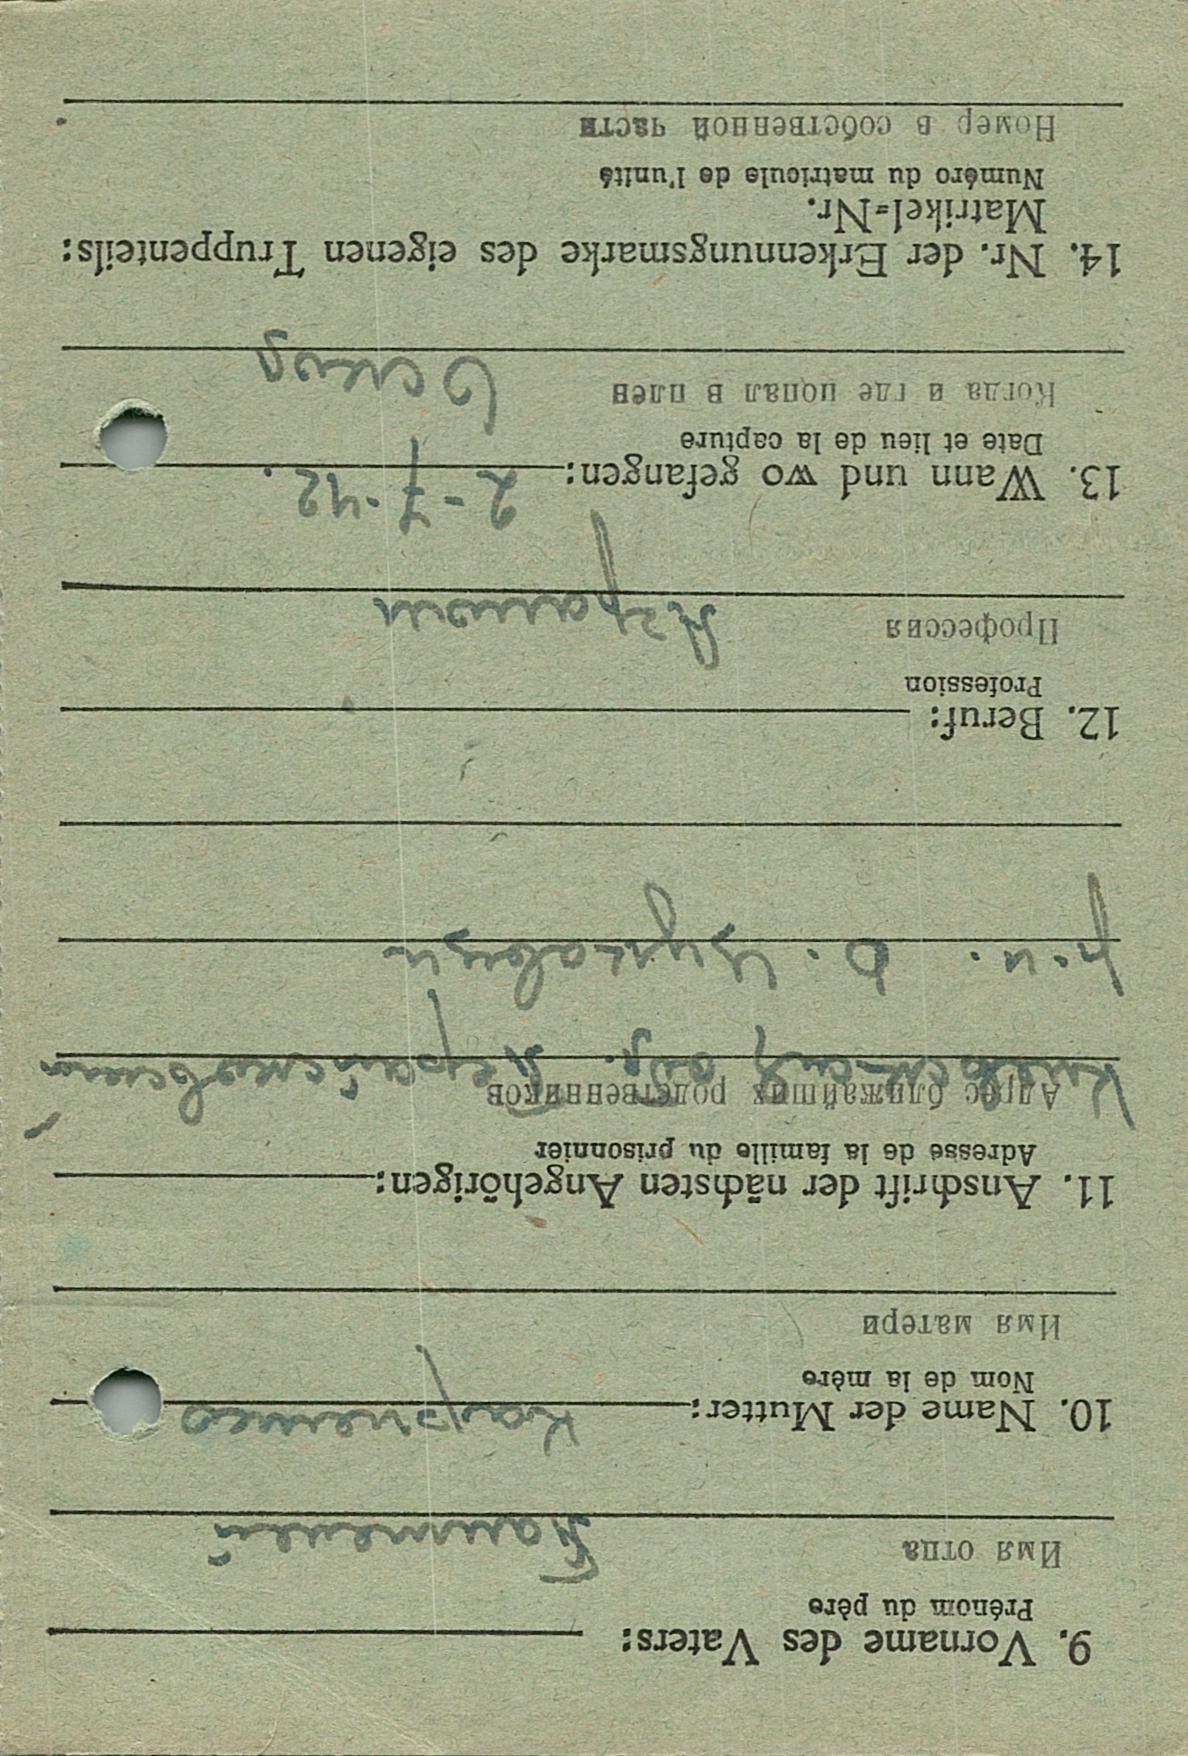 9. Vorname des Vaters:
Prénom du père
Имя отца
Пантелей
10. Name der Mutter: Карпенко
Nom de la mère
Имя матери
11. Anschrift der nächsten Angehörigen:
Adresse de la famille du prisonnier
Адрес ближайших родственников
Киевская обл.
р-н. с.
12. Beruf:
Profession
Профессия
Аграном
13. Wann und wo gefangen: 2-7-42.
Date et lieu de la capture
Когда и где попал в плен
Оскол
14. Nr. der Erkennungsmarke des eigenen Truppenteils:
Matrikel-Nr.
Numéro du matricule de l'unité
Номер в собственной части